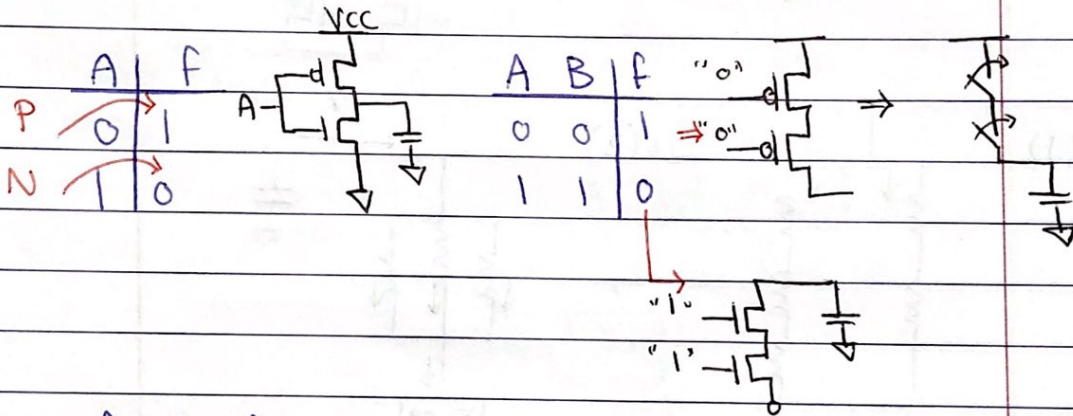 VCC
A | F
P 0 | 1
N 1 | 0
A
A B | f
0 0 | 1
1 1 | 0
"0"
"0"
"1"
"1"